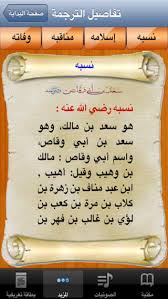 تفاصيل الترجمة
صفحة البداية
نسبه
إسلامه
مناقبه
وفاته
نسبه
سعد بن أبي وقاص
نسبه رضي الله عنه :
هو سعد بن مالك، وهو
سعد بن أبي وقاص،
واسم أبي وقاص : مالك
بن وهيب وقيل: أهيب ,
ابن عبد مناف بن زهرة بن
كلاب بن مرة بن كعب بن
لؤي بن غالب بن فهر بن
مكتبة
الصوتيات
المزيد
بطاقة تعريفية